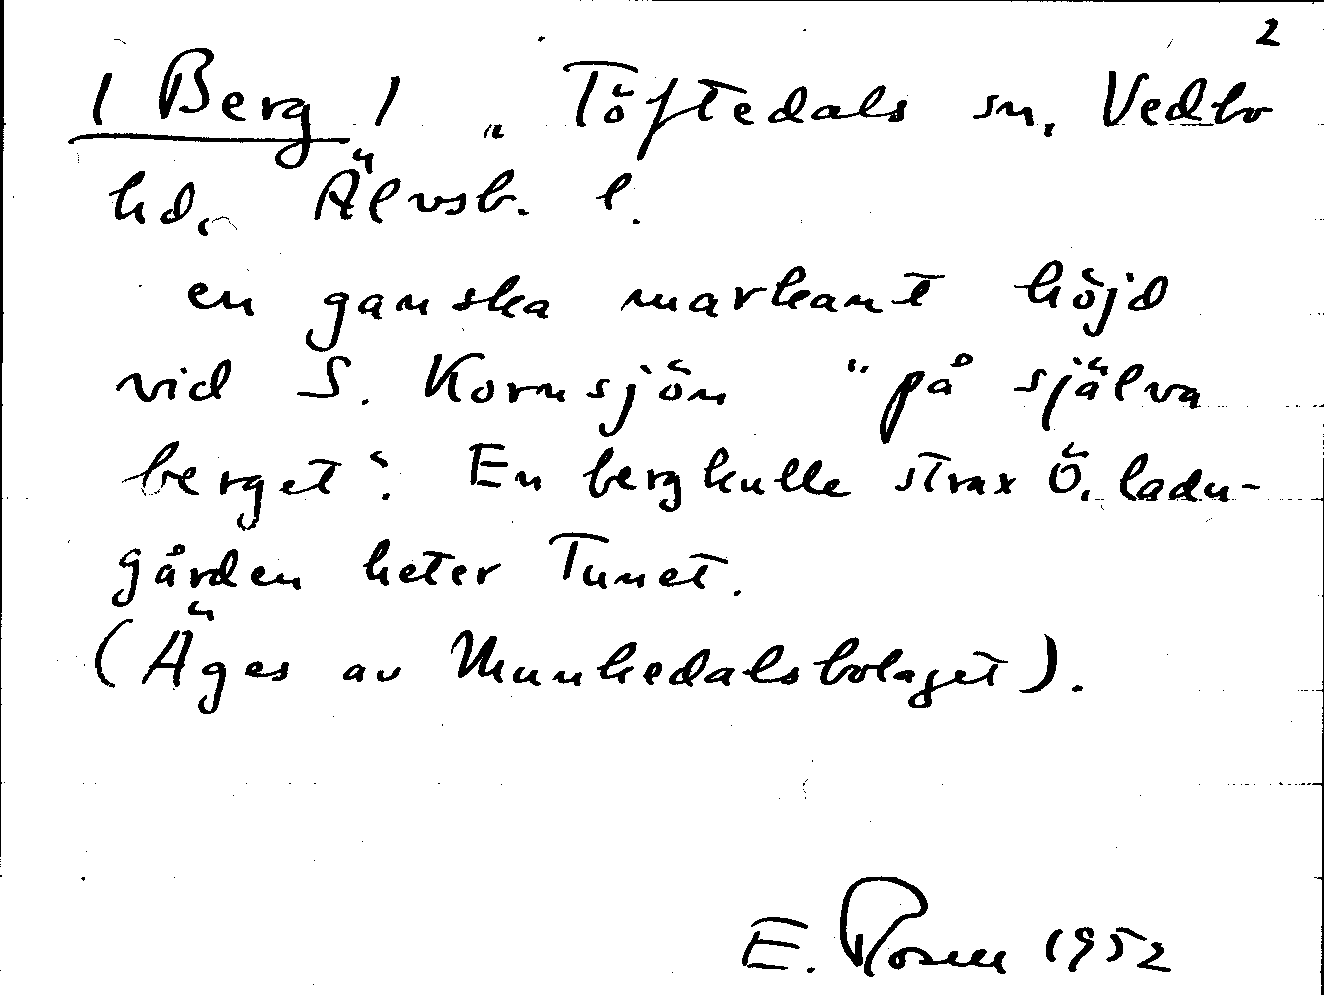 2
/ Berg / Töftedals sn, Vedbo
hd, Älvsb. l.
en ganska markant höjd
vid S. Kornsjön "på själva
berget". En bergkulle strax Ö. ladu-
gården heter Tunet.
(Äges av Munkedalsbolaget).
E. Rosell 1952